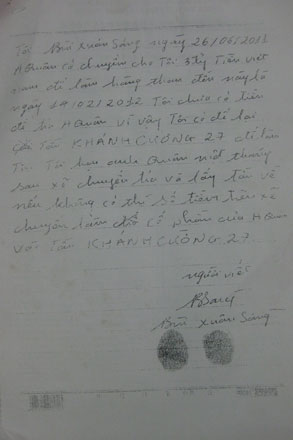 Tôi Bùi Xuân Sáng ngày 26/06/2011
A Quân có chuyển cho Tôi 3 tỷ Tiền việt
nam để làm hàng than đến nay là
ngày 14/02/2012 Tôi chưa có tiền
để trả A Quân vì vậy Tôi có để lại
Tàu KHÁNH CƯỜNG 27 để làm
Tin. Tôi hẹn anh Quân một tháng
sau sẽ chuyển trả và lấy tàu về
nếu không có thì số tiền trên sẽ
chuyển thành cổ phần của A Quân
với Tàu KHÁNH CƯỜNG 27.
người viết
Sáng
Bùi Xuân Sáng